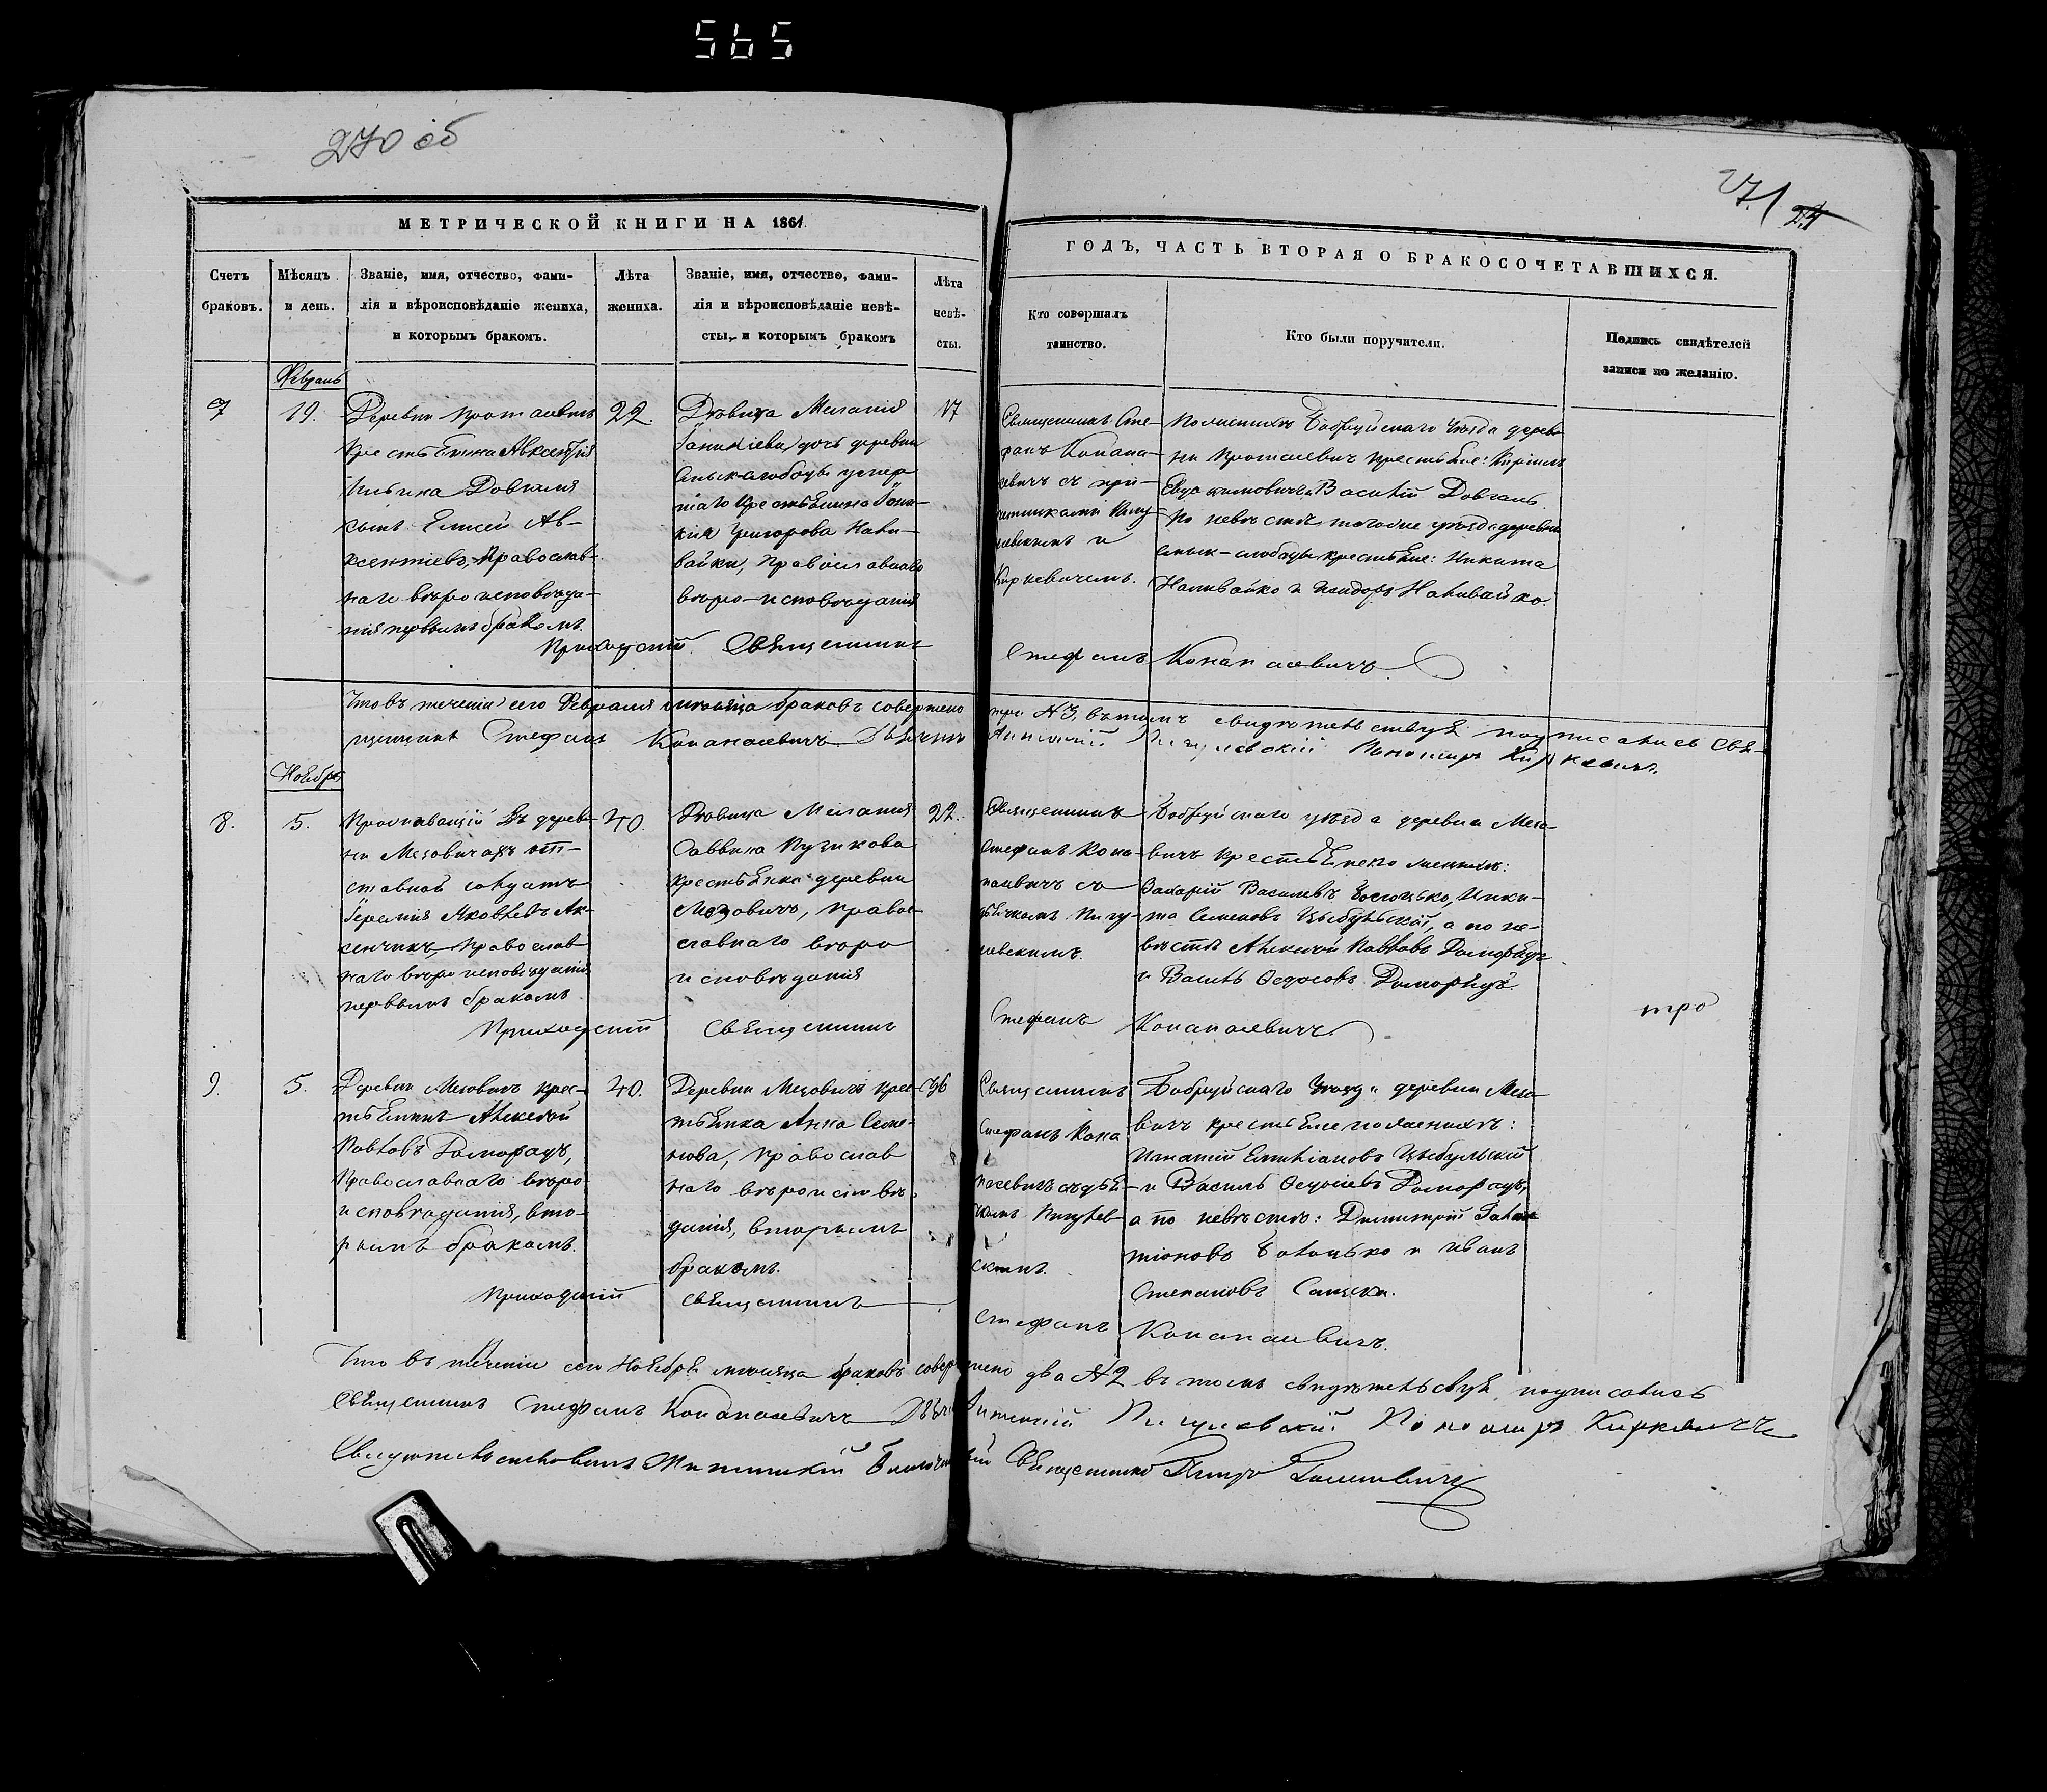 565
270 об
271
24
МЕТРИЧЕСКОЙ КНИГИ НА 1861.
Счетъ браковъ.
Мѣсяцъ и день.
Званіе, имя, отчество, фами-
лія и вѣроисповѣданіе жениха,
и которымъ бракомъ.
Лѣта жениха.
Званіе, имя, отчество, фами-
лія и вѣроисповѣданіе невѣ-
сты, и которымъ бракомъ
Лѣта невѣ-
сты.
ГОДЪ, ЧАСТЬ ВТОРАЯ О БРАКОСОЧЕТАВШИХСЯ.
Кто совершалъ
таинство.
Кто были поручители.
Подпись свидѣтелей
записи по желанію.
Февраль
7
19.
Деревни Протасевичъ
Крестьянина Авксентія
Ильина Довгаля
сынъ Елисей Ав-
ксентіевъ, Православ-
наго вѣроисповѣда-
нія первымъ бракомъ.
22.
Дѣвица Меланія
Іаникіева дочь деревни
умер
шаго Крестьянина Іани-
кія Григорова Нали-
вайки, Православнаго
вѣро-исповѣданія
17
Священникъ Сте-
фанъ Конопа-
севичъ съ при-
четниками Пигу
левскимъ и
Киркевичемъ.
По женихѣ Бобруйскаго уѣзда дерев
ни Протасевичъ крестьяне: Кирилъ
Евдокимовичъ и Василій Довгаль
по невѣстѣ того же уѣзда деревни
слободы крестьяне: Никита
Наливайко и Исидоръ Наливайко.
Приходскій Священникъ
Стефанъ Конапасевичъ
Что въ теченіи сего Февраля мѣсяца браковъ совершено
три №3, въ томъ свидѣтельствуя подписались Свя-
щенникъ Стефанъ Конапасевичъ Дьячекъ
Пигулевскій Пономарь Киркевичъ.
Ноябрь
8.
5.
Проживающій въ дерев-
ни Мезовичахъ от-
ставной солдатъ
Іеремія Яковлевъ Ак-
сенчикъ, Православ
наго вѣроисповѣданія
первымъ бракомъ
40.
Дѣвица Меланія
Саввина Пузикова
крестьянка деревни
Мезовичъ, Право-
славнаго вѣро
исповѣданія
22.
Священникъ
Стефанъ Кона-
пасевичъ съ
дьячкомъ Пигу-
левскимъ.
Бобруйскаго уѣзда деревни Мезо-
вичъ крестьяне по женихѣ:
Захарій Васильевъ Ники-
та Семеновъ Цыбульскій, а по не-
вѣстѣ Алексѣй Павловъ Доморадъ
и Василь Ѳедосовъ Доморадъ.
Приходскій Священникъ
Стефанъ Конапасевичъ.
тро
9.
5.
Деревни Мезовичъ крес-
тьянинъ Алексѣй
Павловъ Доморадъ,
Православнаго вѣро
исповѣданія, вто-
рымъ бракомъ.
40.
Деревни Мезовичъ крес-
тьянка Анна Семе-
нова, Православ
наго вѣроисповѣ-
данія, вторымъ
бракомъ.
Священникъ
Стефанъ Кона
пасевичъ съ дья-
чкомъ Пигулев
скимъ.
Бобруйскаго уѣзда деревни Мезо-
вичъ крестьяне по женихѣ:
Игнатій Емиліановъ Цыбульскій
и Василь Ѳедосіевъ Доморадъ,
а по невѣстѣ: Димитрій
и Иванъ
Степановъ
Приходскій Священникъ
Стефанъ Конапасевичъ.
Что въ теченіи сего Ноября мѣсяца браковъ совершено два №2 въ томъ свидѣтельствуя подписались
Священникъ Стефанъ Конапасевичъ Дьячекъ Пигулевскій Пономарь Киркевичъ
Свидѣтельствовалъ Священникъ Петръ